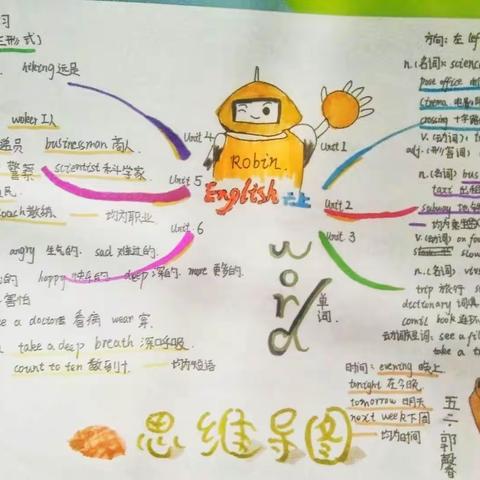 习
三形式)
hiking 远足
woker 工人
businessman 商人
警察 scientist 科学家
coach 教练 均为职业
angry 生气的. sad 难过的.
happy 快乐的 deep 深的. more 更多的.
害怕
a doctor 看病 wear 穿.
take a deep breath 深呼吸
count to ten 数到十 均为短语
Unit 4
Unit 5
Unit 6
Robin.
English 六上
Unit 1
Unit 2
Unit 3
word
单词
方向: 左 lef
n.(名词): scienc
post office
cinema 电影
crossing 十字路
v.(动词)
adj.(形容词)
n.(名词) bus
taxi 出租
subway 地
v.(动词) on foo
slow
n.(名词)
trip 旅行
dictionary 词典
comic book 连环
see a fil
take a t
时间: evening 晚上
tonight 在今晚
tomorrow 明天
next week 下周
均为时间
思维导图
五六 郭馨